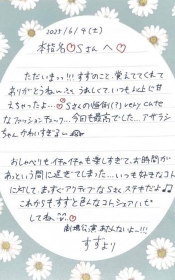 2025/6/4(土)
本指名♡Sさんへ♡
ただいまっっ!!!すずのこと、覚えててくれて
ありがとうね〜。うれしくて、いつも以上に甘
えちゃったよ…♡Sさんの
なファッションチェック…今日も最高でした…アザラシ
ちゃんかわいすぎる
おしゃべりもイチャイチャも楽しすぎて、お時間が
あっという間に過ぎてしまった…いつも好きなコト
に対して、まっすぐアクティブなSさん ステキだよ♪
これからもすずと色んなコト、シェアハピ
してね
劇場公演 あたんないよ〜!!!
すずより